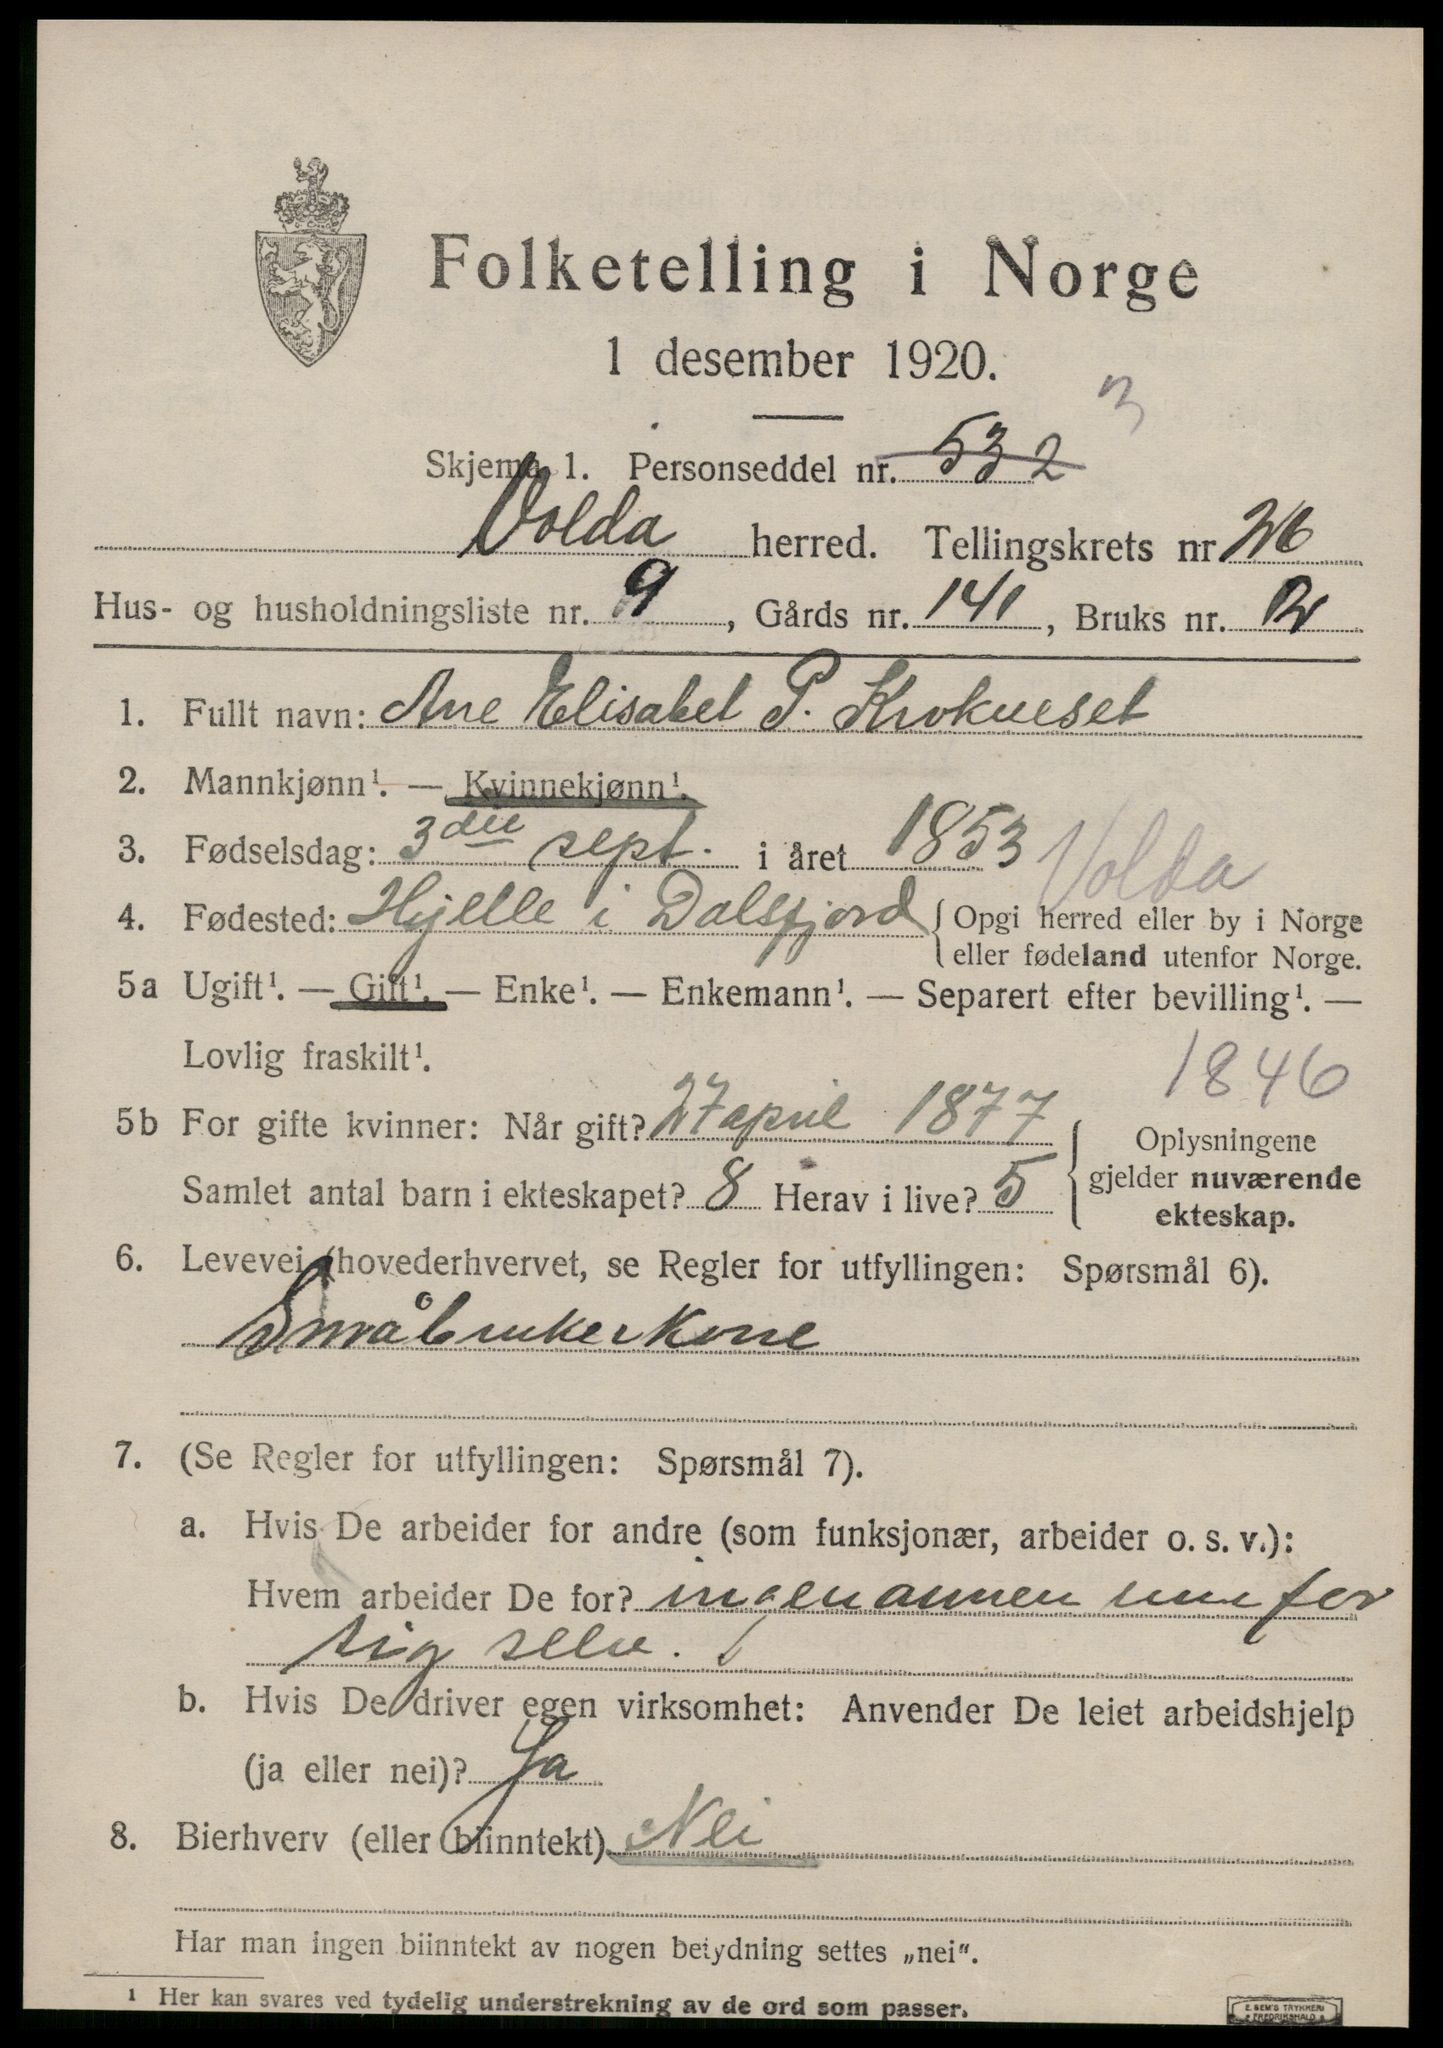 Folketelling i Norge
1 desember 1920.
3
Skjema 1. Personseddel nr. 532
Volda herred. Tellingskrets nr 26
Hus- og husholdningsliste nr. 9, Gårds nr. 141, Bruks nr.
1. Fullt navn: Ane Elisabet P. Krokneset
2. Mannkjønn¹. — Kvinnekjønn¹.
3. Fødselsdag: 3die sept. i året 1853
Volda
4. Fødested: Hjelle i Dalsfjord { Opgi herred eller by i Norge
eller fødeland utenfor Norge.
5a Ugift¹. — Gift¹. — Enke¹. — Enkemann¹. — Separert efter bevilling¹. —
Lovlig fraskilt¹.
1846
5b For gifte kvinner: Når gift? 27 april 1877
Samlet antal barn i ekteskapet? 8 Herav i live? 5
{ Oplysningene
gjelder nuværende
ekteskap.
6. Levevei (hovederhvervet, se Regler for utfyllingen: Spørsmål 6).
Småbrukerkone
7. (Se Regler for utfyllingen: Spørsmål 7).
a. Hvis De arbeider for andre (som funksjonær, arbeider o. s. v.):
Hvem arbeider De for? ingen annen enn for
sig selv.
b. Hvis De driver egen virksomhet: Anvender De leiet arbeidshjelp
(ja eller nei)? Ja
8. Bierhverv (eller biinntekt) Nei
Har man ingen biinntekt av nogen betydning settes „nei“.
¹ Her kan svares ved tydelig understrekning av de ord som passer.
E. SEM'S TRYKKERI
FREDRIKSHALD